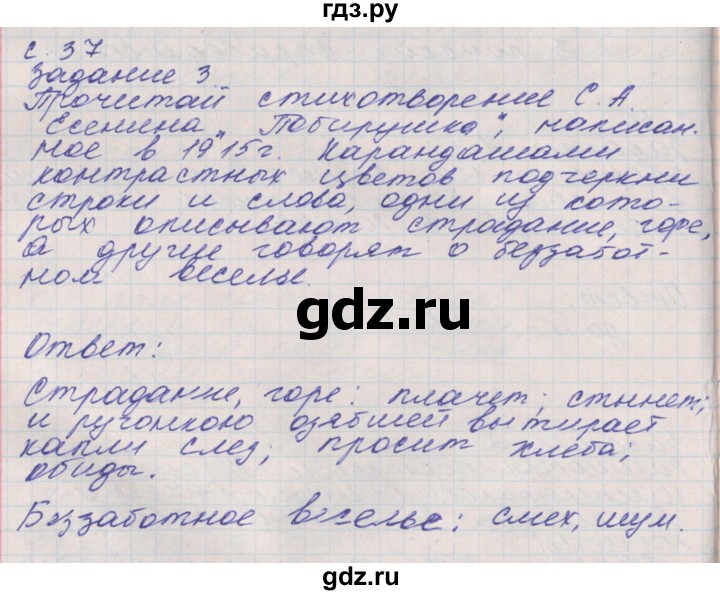 гдз.ру
с. 37
Задание 3
Прочитай стихотворение С. А.
Есенина „Побирушка", написан-
ное в 1915 г. Карандашами
контрастных цветов подчеркни
строки и слова, одни из кото-
рых описывают страдание, горе,
а другие говорят о беззабот-
ном веселье.
gdz.ru
Ответ:
Страдание, горе: плачет; стынет;
и ручонкою озябшей вытирает
капли слез; просит хлеба;
обиды.
Беззаботное веселье: смех, шум.
gdz.ru